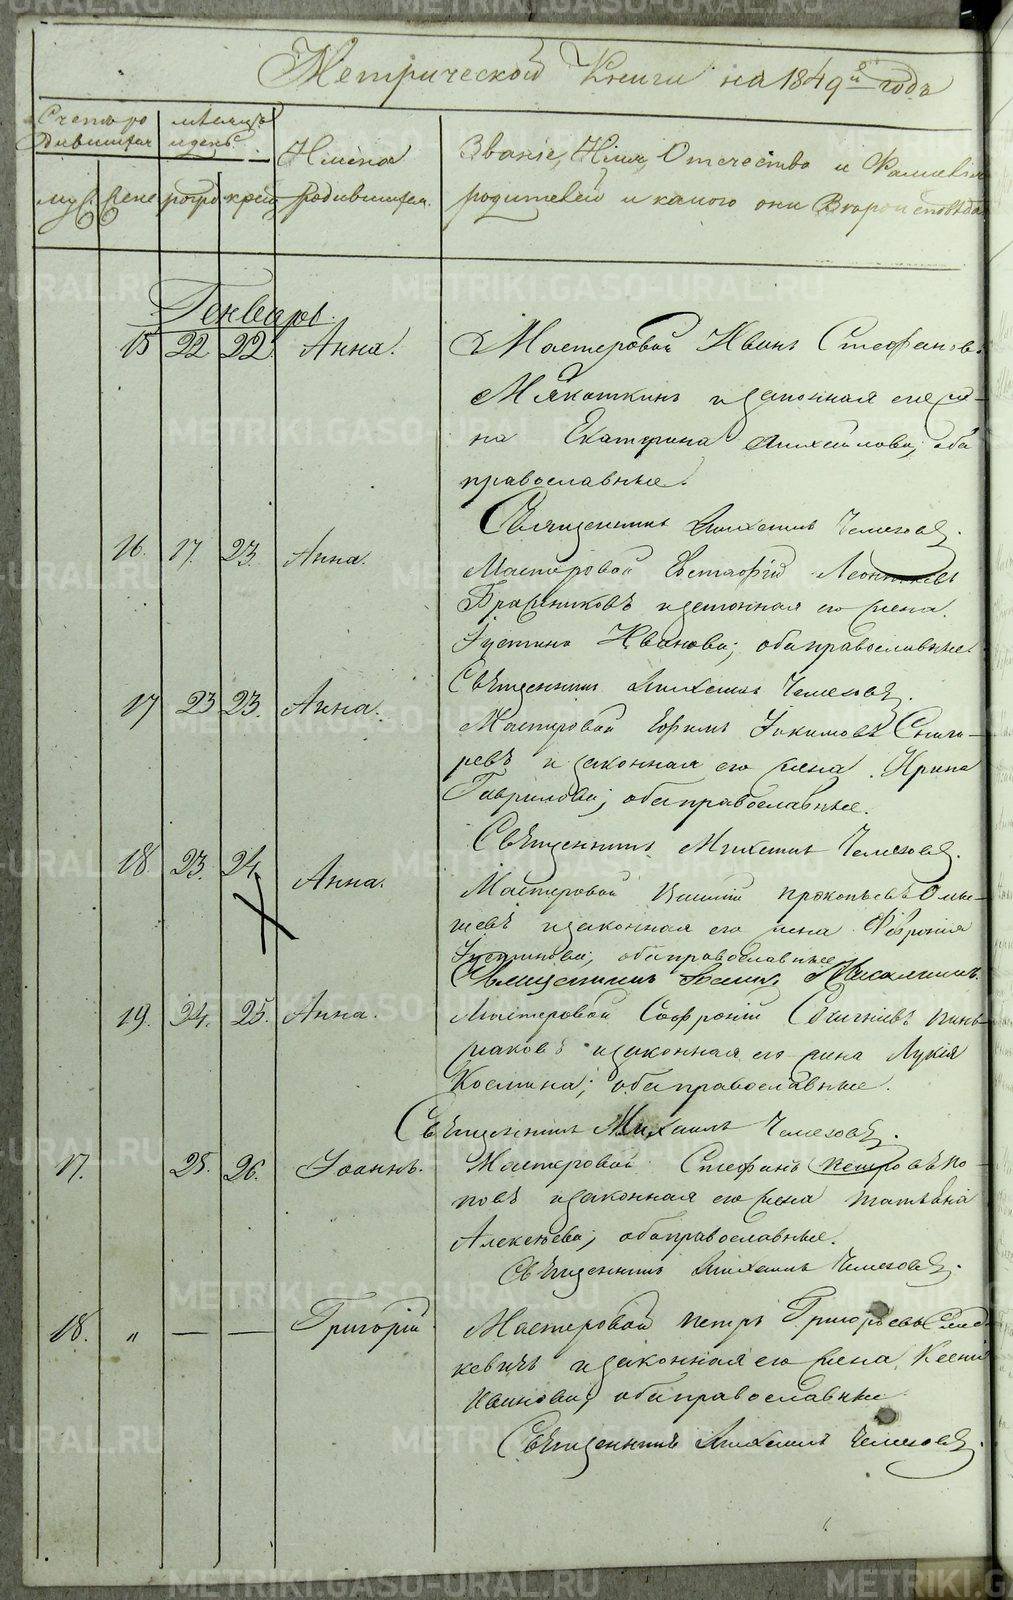 Метрической Книги на 1849й годъ
Счетъ ро
дившихся
мѣсяцъ
и день
Имена
родившихся.
Званіе, Имя, Отечество и Фамилія
родителей и какого они Вѣроисповѣда
муж. жене рожд крещ
Генварь.
15 22 22 Анна.
Мастеровой Иванъ Стефановъ
Мякоткинъ и законная его же-
на Екатерина Михайлова; оба
православные.
Священникъ Михаилъ Чемезовъ.
16. 17. 23. Анна.
Мастеровой Евстафій Леонтьевъ
Бражниковъ и законная его жена
Іустина Иванова; оба православные.
Священникъ Михаилъ Чемезовъ.
17 23 23. Анна.
Мастеровой Ефимъ Іакимовъ Сниги-
ревъ и законная его жена Ирина
Гаврилова; оба православные.
Священникъ Михаилъ Чемезовъ.
18 23. 24. Анна.
Мастеровой прокопьевъ
шевъ и законная его жена Февронія
Іустинова; оба православные
Священникъ
19. 24. 25. Анна.
Мастеровой Софроній
маковъ и законная его жена Лукія
Косьмина; оба православные.
Священникъ Михаилъ Чемезовъ.
17. 25. 26. Іоаннъ.
Мастеровой Стефанъ петровъ по-
повъ и законная его жена татьяна
Алексѣева; оба православные.
Священникъ Михаилъ Чемезовъ.
18. " — — Григорій
Мастеровой петръ Григорьевъ
кевичъ и законная его жена Ксенія
Иванова; оба православные
Священникъ Михаилъ Чемезовъ.
METRIKI.GASO-URAL.RU